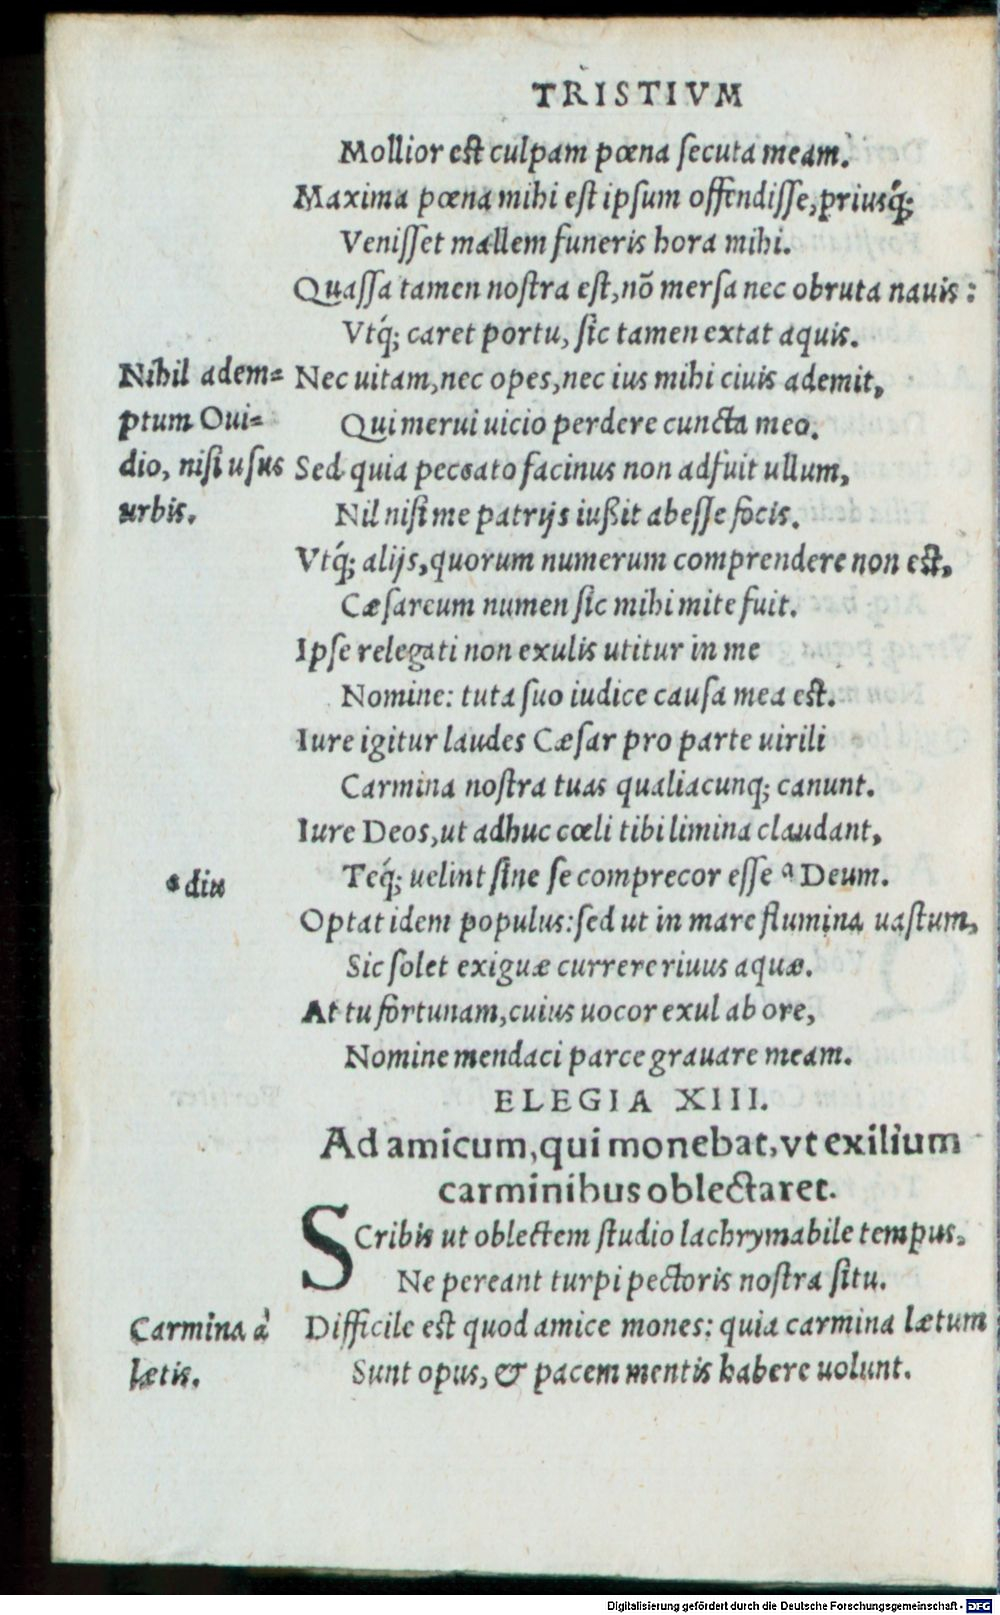 TRISTIVM
Mollior est culpam pœna secuta meam.
Maxima pœna mihi est ipsum offendisse, priusq́;
Venisset mallem funeris hora mihi.
Quassa tamen nostra est, nõ mersa nec obruta nauis:
Vtq́; caret portu, sic tamen extat aquis.
Nihil adem=
ptum Oui=
dio, nisi usus
urbis.
Nec uitam, nec opes, nec ius mihi ciuis ademit,
Qui merui uicio perdere cuncta meo.
Sed quia peccato facinus non adfuit ullum,
Nil nisi me patrijs iußit abesse focis.
Vtq́; alijs, quorum numerum comprendere non est,
Cæsareum numen sic mihi mite fuit.
Ipse relegati non exulis utitur in me
Nomine: tuta suo iudice causa mea est.
Iure igitur laudes Cæsar pro parte uirili
Carmina nostra tuas qualiacunq; canunt.
Iure Deos, ut adhuc cœli tibi limina claudant,
Teq́; uelint sine se comprecor esse ᵃ Deum.
ᵃ diu
Optat idem populus: sed ut in mare flumina uastum,
Sic solet exiguæ currere riuus aquæ.
At tu fortunam, cuius uocor exul ab ore,
Nomine mendaci parce grauare meam.
ELEGIA XIII.
Ad amicum, qui monebat, vt exilium
carminibus oblectaret.
SCribis ut oblectem studio lachrymabile tempus,
Ne pereant turpi pectoris nostra situ.
Carmina à
lætis.
Difficile est quod amice mones: quia carmina lætum
Sunt opus, & pacem mentis habere uolunt.
Digitalisierung gefördert durch die Deutsche Forschungsgemeinschaft - DFG